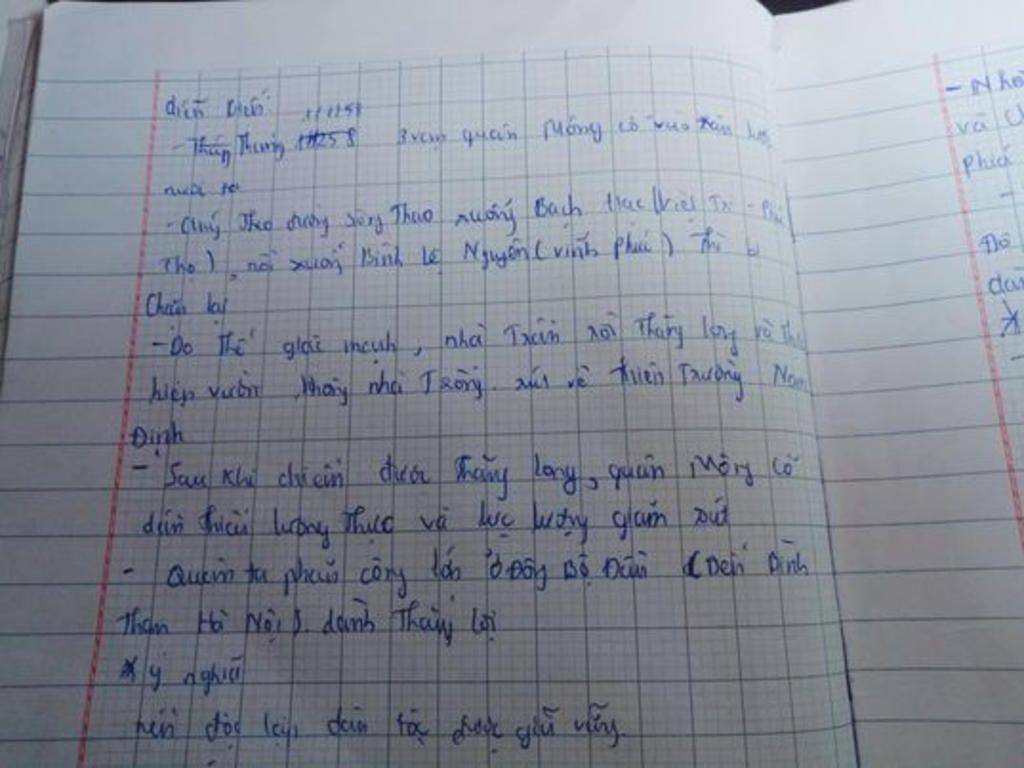 diễn biến
- Tháng 1/1258 3 vạn quân Mông cổ vào xâm lược
nước ta
- Chúng theo đường sông Thao xuống Bạch Hạc (Việt Trì - Phú
Thọ), xuống Bình Lệ Nguyên (Vĩnh Phúc) thì bị
Chặn lại
- Do thế giặc mạnh, nhà Trần rời Thăng long và
hiện vườn không nhà Trống. rút về thiên Trường Nam
Định
- Sau khi chiếm được Thăng long, quân Mông Cổ
dần thiếu lương Thực và lực lượng giảm sút
- Quân ta phản công lớn ở Đông Bộ Đầu (Dến Đình
Than Hà Nội). dành Thắng lợi
* ý nghĩa
nền độc lập dân tộc được giữ vững
- Nhà
và
phía
-
Đô
dân
*
-